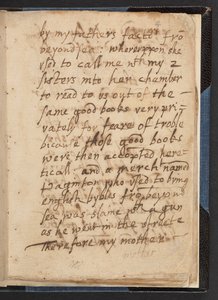 by my fathers factor fro
beyond sea: whereuppon she
used to call me wth my 2
sisters into her chamber
to read to us out of the
same good books very pri-
vately for feare of troble
bicause those good books
were then accopted here-
ticall: and a merch named
used to bring
english bybles fro beyond
sea was slaine wth a gun
as he went in the streete
Therefore my mother
mother